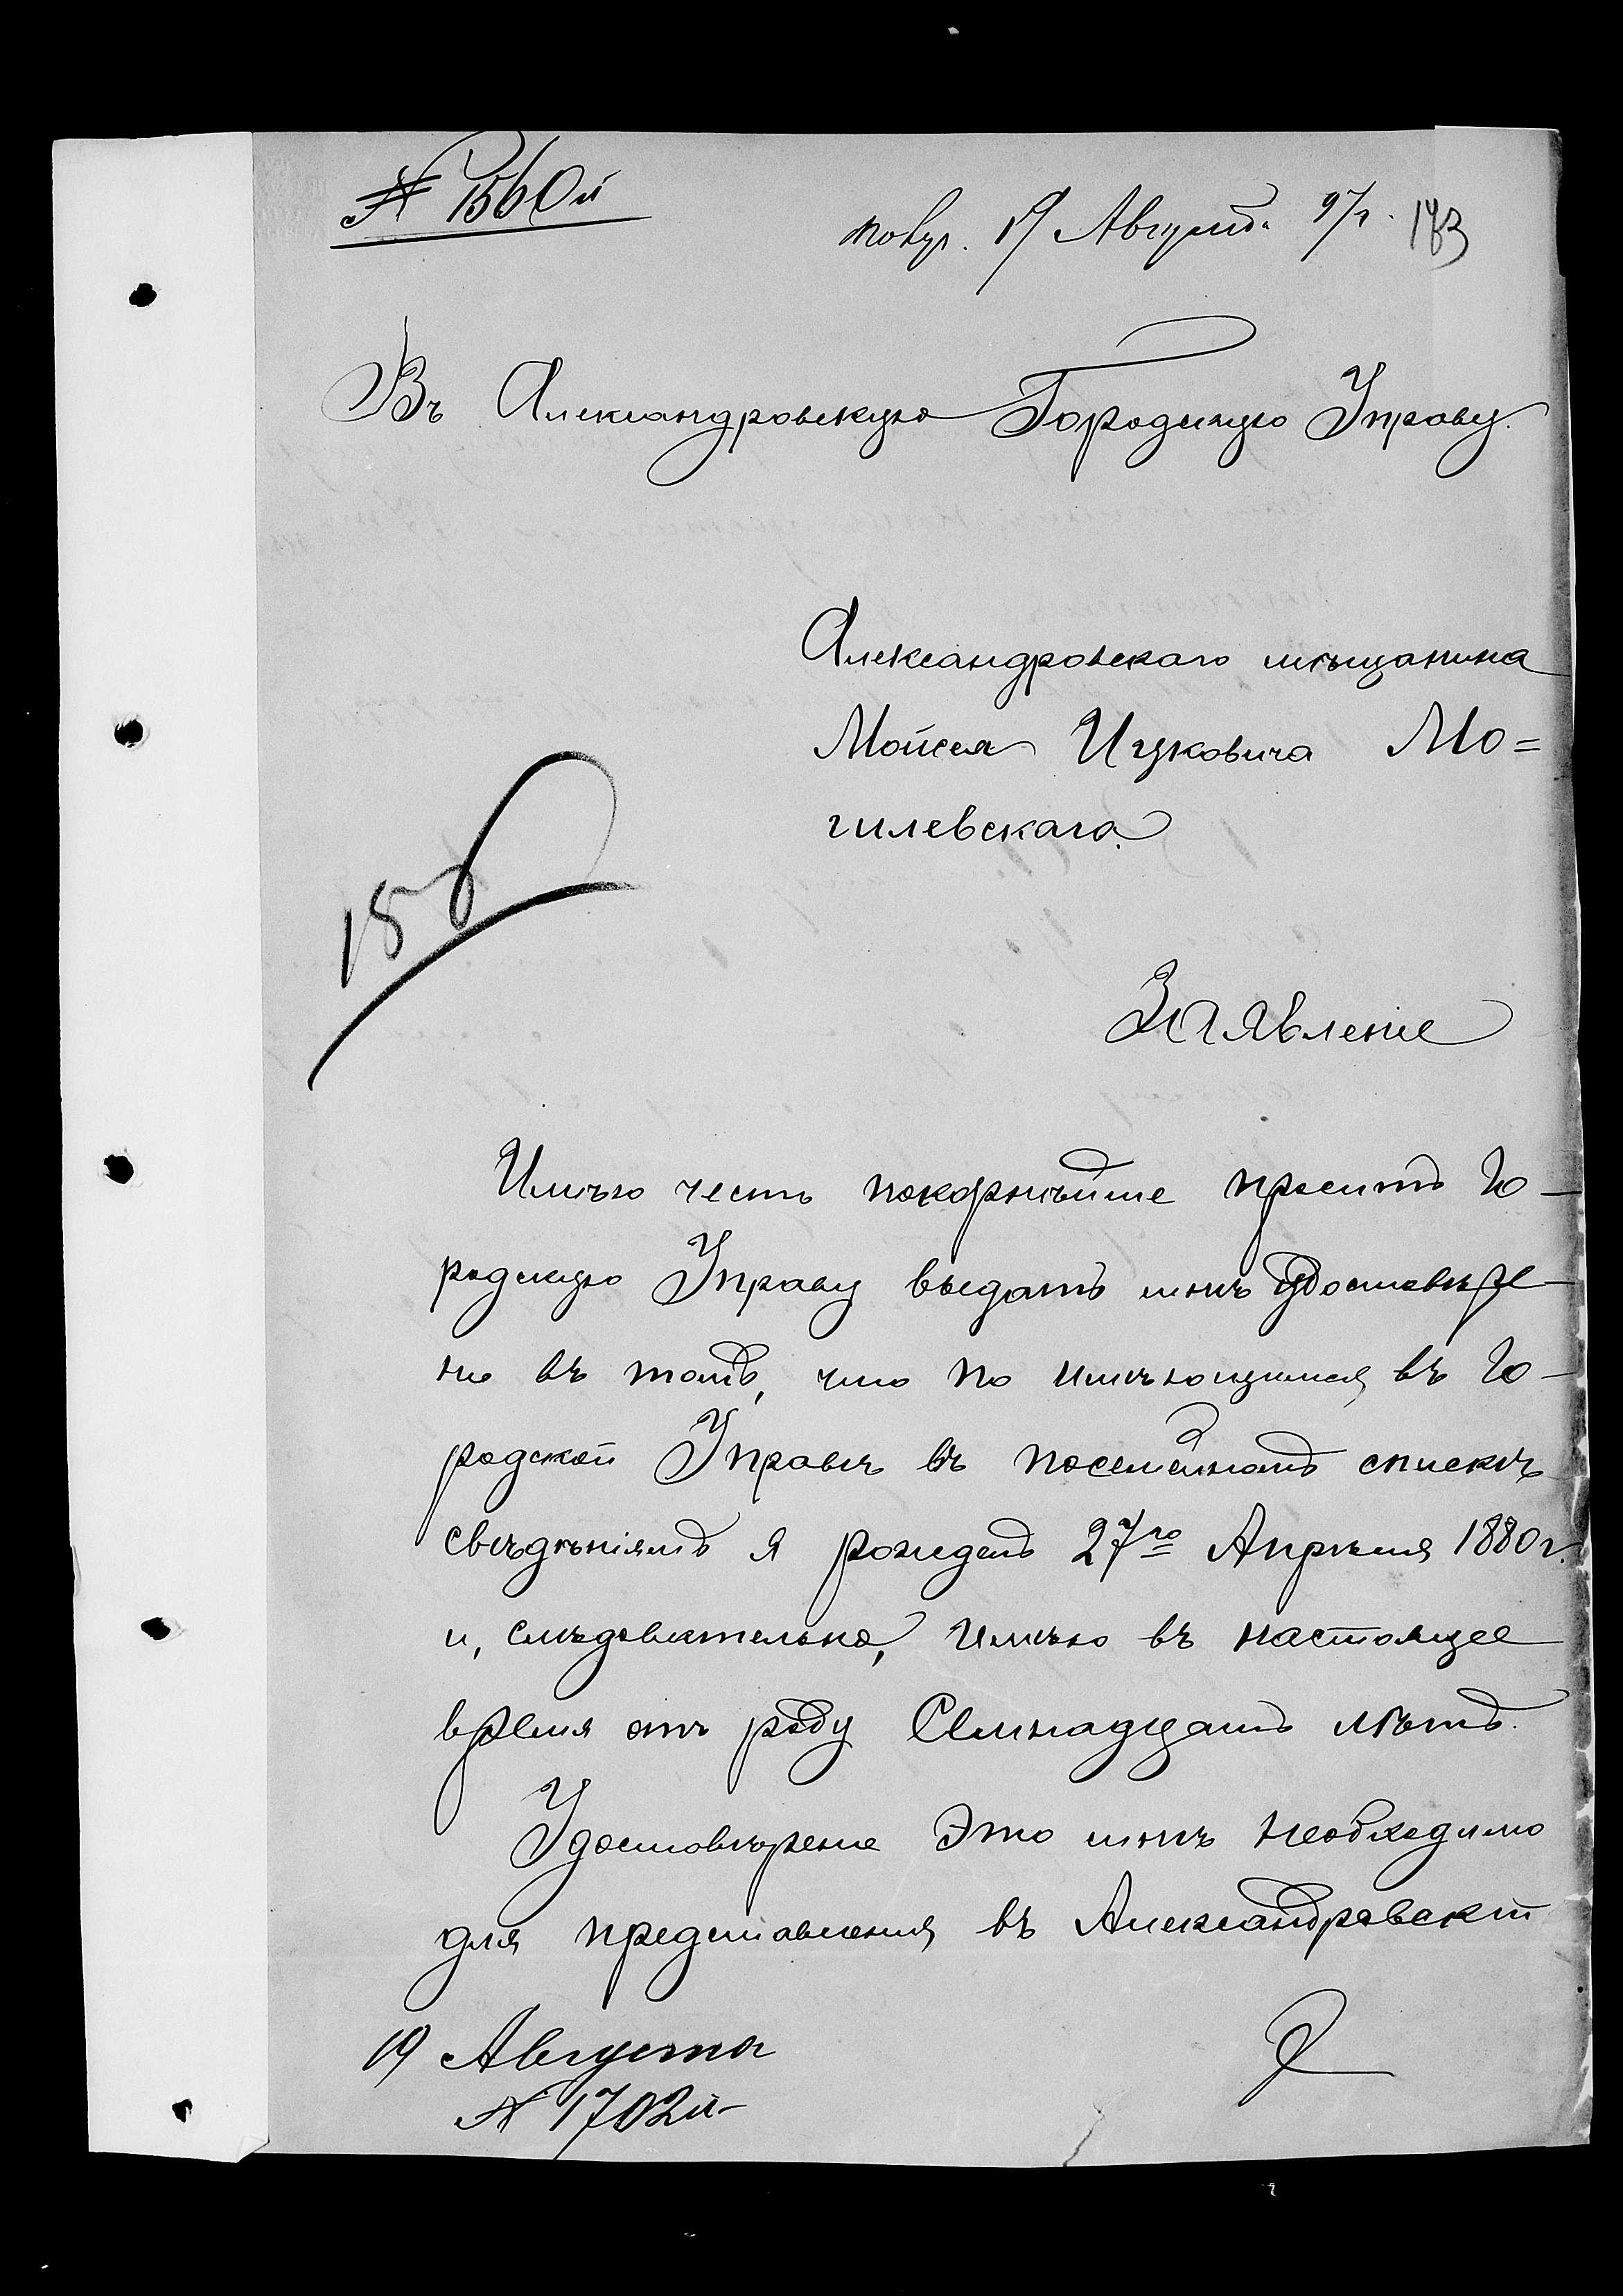 № 1560 й
получ. 19 Августа 97 г. 173
Въ Александровскую Городскую Управу.
Александровскаго мѣщанина
Мойсея Ицковича Мо=
гилевскаго.
158
Заявленіе
Имѣю честь покорнѣйше просить Го-
родскую Управу выдать мнѣ удостовѣре-
ніе въ томъ, что по имѣющимся въ Го-
родской Управѣ въ посемейномъ спискѣ
свѣдѣніямъ я рожденъ 27го Апрѣля 1880 г.
и, слѣдовательно, имѣю въ настоящее
время отъ роду Семнадцать лѣтъ.
Удостовѣреніе это мнѣ необходимо
для представленія въ Александровскій
19 Августа
№ 1702 й